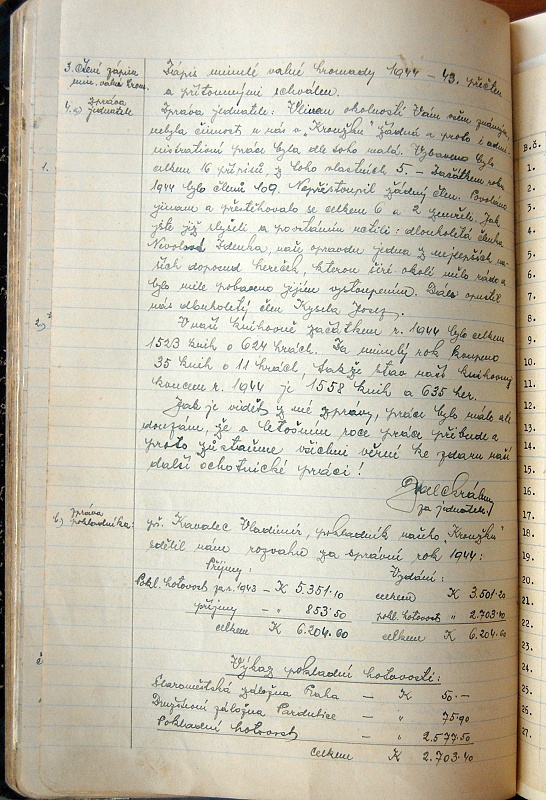 3. Čtení zápisu
min. valné hrom.
Zápis minulé valné hromady 1944 – 43. přečten
a přítomnými schválen.
4. a) Zpráva
jednatele
Zpráva jednatele: Vlivem okolností Vám všem známých,
nebyla činnost u nás v „Kroužku" žádná a proto i admi-
nistrativní práce byla dle toho malá. Vybaveno bylo
1.
celkem 16 přípisů, z toho vlastních 5. – Začátkem roku
1944 bylo členů 109. Nepřistoupil žádný člen.
jinam a přestěhovalo se celkem 6 a 2 zemřeli. Jak
jste již slyšeli a povstáním uctili: dlouholetá členka
Zdenka, naše opravdu jedna z nejlepších na-
šich doposud hereček, kterou širé okolí mělo rádo a
bylo mile pobaveno jejím vystoupením. Dále opustil
nás dlouholetý člen Kysela Josef.
2.
V naší knihovně začátkem r. 1944 bylo celkem
1523 knih o 624 hrách. Za minulý rok koupeno
35 knih o 11 hrách, takže stav naší knihovny
koncem r. 1944 je 1558 knih a 635 her.
Jak je vidět z mé zprávy, práce bylo málo ale
doufám, že v letošním roce práce přibude a
proto zůstaňme všichni věrni ke zdaru naší
další ochotnické práci!
za jednatele
b) Zpráva
pokladníka:
př. Kavalec Vladimír, pokladník našeho „Kroužku"
sdělil nám rozvahu za správní rok 1944:
Příjmy: Vydání:
Pokl. hotovost za r. 1943 – K 5.351·10 celkem K 3.501·20
příjmy – " 853·50 pokl. hotovost " 2.703·40
celkem K 6.204·60 celkem K 6.204·60
Výkaz pokladní hotovosti:
Staroměstská záložna Praha – K 50·–
Družstevní záložna Pardubice – " 75·90
Pokladní hotovost – " 2.577·50
celkem K 2.703·40
B.č.
1.
2.
3.
4.
5.
6.
7.
8.
9.
10.
11.
12.
13.
14.
15.
16.
17.
18.
19.
20.
21.
22.
23.
24.
25.
26.
27.